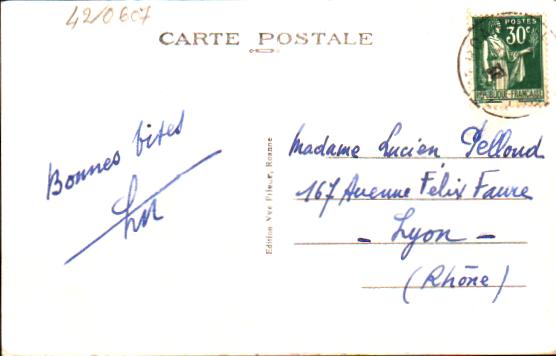 42/0607
CARTE POSTALE
POSTES
30c
REPUBLIQUE FRANÇAISE
Bonnes bises
Edition Vve Prieur, Roanne
Madame Lucien Pelloud
167 Avenue Félix Faure
- Lyon -
(Rhône)